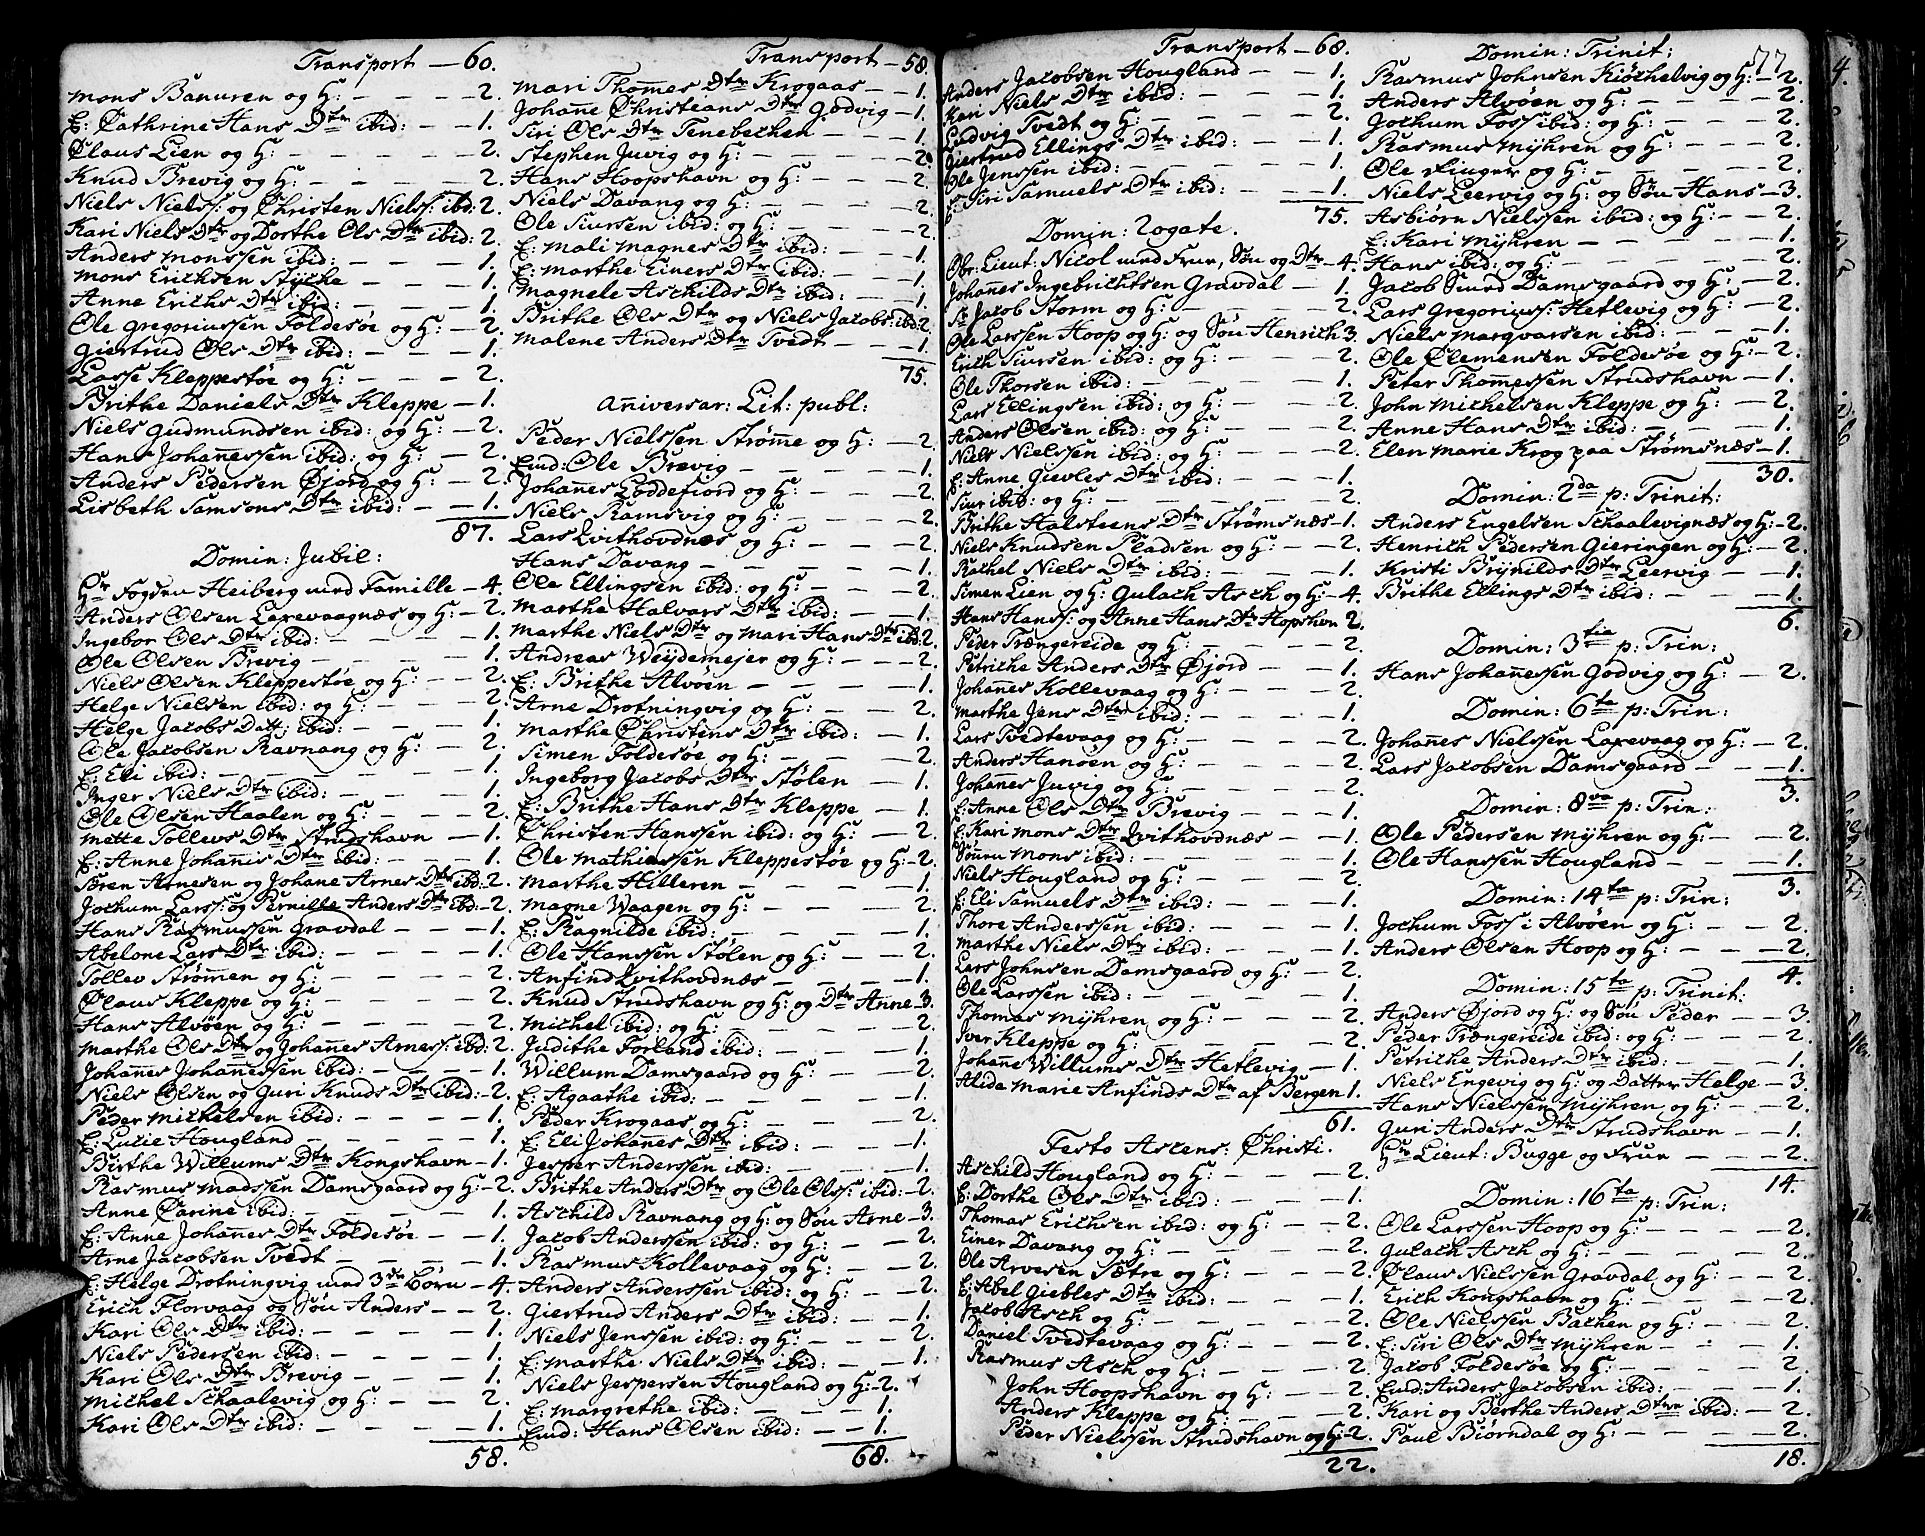 Transport — 60.
Mons Banuren og H: — 2.
E: Cathrine Hans Dtr ibid: — 1.
Claus Lien og H: — 2.
Knud Brevig og H: — 2.
Niels Nielss: og Christen Nielss: ibd: 2.
Kari Niels Dtr og Dorthe Ols Dtr ibid: 2.
Anders Monssen ibid: — 1.
Mons Erichsen Styche — 1.
Anne Erichs Dtr ibid: — 1.
Ole Gregoriussen Foldesøe og H: — 2.
Giertrud Ols Dtr ibid: — 1.
Lasse Kleppestøe og H: — 2.
Brithe Daniels Dtr Kleppe — 1.
Niels Gudmundsen ibid: og H: — 2.
Hans Johannessen ibid: og H: — 2.
Anders Pedersen Øjord og H: — 2.
Lisbeth Samsons Dtr ibid: — 1.
87.
Domin: Jubil:
Hr Fogden Heiberg med Famille — 4.
Anders Olsen Laxevaagnæs og H: — 2.
Ingebor Ols Dtr ibid: — 1.
Ole Olsen Brevig — 1.
Niels Olsen Kleppestøe og H: — 2.
Helge Nielsen ibid: og H: — 2.
Helge Jacobs Datt: ibid: — 1.
Ole Jacobsen Ravnang og H: — 2.
E: Eli ibid: — 1.
Inger Niels Dtr ibid: — 1.
Ole Olsen Haalen og H: — 2.
Mette Tollevs Dtr Strudshavn — 1.
E: Anne Johannis Dtr ibid: — 1.
Søren Arnesen og Johane Arnes Dtr ibd: 2.
Jochum Larss: og Pernille Anders Dtr ibd: 2.
Hans Rasmussen Gravdal — 1.
Abelone Lars Dtr ibid: — 1.
Tollev Strømmen og H: — 2.
Claus Kleppe og H: — 2.
Hans Alvøen og H: — 2.
Marthe Ols Dtr og Johannes Arness: ibd: 2.
Johannes Johannessen ibid: — 1.
Niels Olsen og Guri Knuds Dtr ibid: — 2.
Peder Michelsen ibid: — 1.
E: Lucie Hougland — 1.
Birthe Willums Dtr Kongshavn — 1.
Rasmus Madssen Damsgaard og H: — 2.
Anne Carine ibid: — 1.
E: Anne Johannes Dtr Foldesøe — 1.
Arne Jacobsen Tvedt — 1.
E: Helge Drotningvig med 3de Børn — 4.
Erich Florvaag og Søn Anders — 2.
Kari Ols Dtr ibid: — 1.
Niels Pedersen ibid: — 1.
Kari Ols Dtr Brevig — 1.
Michel Schaalevig og H: — 2.
Kari Ols Dtr ibid: — 1.
58.
Transport — 58.
Mari Thomes Dtr Krogaas — 1.
Johanne Christians Dtr Godvig — 1.
Siri Ols Dtr Tenebechen — 1.
Stephen Juvig og H: — 2.
Hans Hoopshavn og H: — 2.
Niels Davang og H: — 2.
Ole Siursen ibid: og H: — 2.
E: Mali Magnes Dtr ibid: — 1.
E: Marthe Einers Dtr ibid: — 1.
Magnele Aschilds Dtr ibid: — 1.
Brithe Ols Dtr og Niels Jacobs: ibd: 2.
Malene Anders Dtr Tvedt — 1.
75.
Aniversar: Lit: publ:
Peder Nielssen Strøme og H: — 2.
Eud: Ole Brevig — 1.
Johannes Loddefiord og H: — 2.
Niels Ramsvig og H: — 2.
Lars Qvithovdnæs og H: — 2.
Hans Davang — 1.
Ole Ellingsen ibid: og H: — 2.
Marthe Halvars Dtr ibid: — 1.
Marthe Niels Dtr og Mari Hans Dtr ibd: 2.
Andreas Weydemejer og H: — 2.
E: Brithe Alvøen — 1.
Arne Drotningvig og H: — 2.
Marthe Christens Dtr ibid: — 1.
Simen Foldesøe og H: — 2.
Ingeborg Jacobs Dtr Stølen 1.
E: Brithe Hans Dtr Kleppe — 1.
Christen Hanssen ibid: og H: — 2.
Ole Mathiassen Kleppestøe og H: — 2.
Marthe Hilleren — 1.
Magne Waagen og H: — 2.
E: Ragnilde ibid: — 1.
Ole Hanssen Stølen og H: — 2.
Anfind Qvithovdnæs — 1.
Knud Strudshavn og H: og Dtr Anne — 3.
Michel ibid: og H: — 2.
Judithe Forland ibid: — 1.
Willum Damsgaard og H: — 2.
E: Agaathe ibid: — 1.
Peder Krogaas og H: — 2.
E: Eli Johannes Dtr ibid: — 1.
Jesper Anderssen ibid: — 1.
Brithe Anders Dtr og Ole Olss: ibid: — 2.
Aschild Ravnang og H: og Søn Arne — 3.
Jacob Anderssen ibid: og H: — 2.
Rasmus Kollevaag og H: — 2.
Anders Anderssen ibid: og H: — 2.
Giertrud Anders Dtr ibid: — 1.
Niels Jenssen ibid: og H: — 2.
E: Marthe Niels Dtr ibid: — 1.
Niels Jespersen Hougland og H: — 2.
E: Margrethe ibid: — 1.
Eud: Hans Olsen ibid: — 1.
68.
Transport — 68.
Anders Jacobsen Hougland — 1.
Kari Niels Dtr ibid: — 1.
Ludvig Tvedt og H: — 2.
Giertrud Ellings Dtr ibid: — 1.
Ole Jenssen ibid: — 1.
E: Siri Samuels Dtr ibid: — 1.
75.
Domin: Rogate.
Obr: Lieut: Nicol med Frue, Søn og Dtr — 4.
Johannes Ingebrichtsen Gravdal — 1.
Sr Jacob Storm og H: — 2.
Ole Larssen Hoop og H: og Søn Henrich 3.
Erich Siursen ibid: og H: — 2.
Ole Thorsen ibid: — 1.
Lars Ellingsen ibid: og H: — 2.
Anders Olsen ibid: og H: — 2.
Niels Nielssen ibid: og H: — 2.
E: Anne Giebles Dtr ibid: — 1.
Siur ibid: og H: — 2.
Brithe Halsteens Dtr Strømsnæs — 1.
Niels Knudsen Pladsen og H: — 2.
Rachel Niels Dtr ibid: — 1.
Simen Lien og H: Gulach Asch og H: — 4.
Hans Hanss: og Anne Hans Dtr Hopshvn 2.
Peder Trængereide og H: — 2.
Petriche Anders Dtr Øjord — 1.
Johannes Kollevaag og H: — 2.
Marthe Jens Dtr ibid: — 1.
Lars Tvedtevaag og H: — 2.
Anders Hanøen og H: — 2.
Johannes Juvig og H: — 2.
E: Anne Ols Dtr Brevig — 1.
E: Kari Mons Dtr Qvithovdnæs — 1.
Sønn Mons ibid: — 1.
Niels Hougland og H: — 2.
E: Eli Samuels Dtr ibid: — 1.
Thore Anderssen ibid: — 1.
Marthe Niels Dtr ibid: — 1.
Lars Johnsen Damsgaard og H: — 2.
Ole Larssen ibid: — 1.
Thomas Myhren og H: — 2.
Iver Kleppe og H: — 2.
Johanne Willums Dtr Hetlevig — 1.
Alida Marie Anfinds Dtr af Bergen 1.
61.
Festo Ascens: Christi.
Aschild Hougland og H: — 2.
E: Dorthe Ols Dtr ibid: — 1.
Thomas Erichsen ibid: og H: — 2.
Einer Davang og H: — 2.
Ole Arvesen Sætre og H: — 2.
E: Abel Giebles Dtr ibid: — 1.
Jacob Asch og H: — 2.
Daniel Tvedtevaag og H: — 2.
Rasmus Asch og H: — 2.
John Hoopshavn og H: — 2.
Anders Kleppe og H: — 2.
Peder Nielssen Strudshavn og H: — 2.
22.
77
Domin: Trinit:
Rasmus Johnsen Kiøchelvig og H: — 2.
Anders Alvøen og H: — 2.
Jochum Foss ibid: og H: — 2.
Rasmus Myhren og H: — 2.
Ole Finger og H: — 2.
Niels Leervig og H: og Søn Hans — 3.
Asbiørn Nielssen ibid: og H: — 2.
E: Kari Myhren — 1.
Hans ibid: og H: — 2.
Jacob Siurd Damsgaard og H: — 2.
Lars Gregoriuss: Hetlevig og H: — 2.
Niels Marqvarsen ibid: — 1.
Ole Clemensen Foldesøe og H: — 2.
Peter Thomessen Strudshavn — 1.
John Michelsen Kleppe og H: — 2.
Anne Hans Dtr ibid: — 1.
Elen Marie Krog paa Strømsnæs — 1.
30.
Domin: 2da p: Trinit:
Anders Engelsen Schaalevignæs og H: — 2.
Henrich Pedersen Gieringen og H: — 2.
Kristi Brynilds Dtr Leervig — 1.
Brithe Ellings Dtr ibid: — 1.
6.
Domin: 3tia p: Trin:
Hans Johannessen Godvig og H: — 2.
Domin: 6ta p: Trin:
Johannes Nielssen Laxevaag og H: — 2.
Lars Jacobsen Damsgaard — 1.
3.
Domin: 8va p: Trin:
Ole Pedersen Myhren og H: — 2.
Ole Hanssen Hougland — 1.
3.
Domin: 14ta p: Trin:
Jochum Foss i Alvøen og H: — 2.
Anders Olsen Hoop og H: — 2.
4.
Domin: 15ta p: Trinit:
Anders Øjord og H: og Søn Peder — 3.
Peder Trængereide ibid: og H: — 2.
Petriche Anders Dtr ibid: — 1.
Niels Engevig og H: og Datter Helge — 3.
Hans Nielssen Myhren og H: — 2.
Guri Anders Dtr Strudshavn — 1.
Hr Lieut: Bugge og Frue — 2.
14.
Domin: 16ta p: Trin:
Ole Larssen Hoop og H: — 2.
Gulach Asch og H: — 2.
Claus Nielssen Gravdal og H: — 2.
Erich Kongshavn og H: — 2.
Ole Nielssen Bachen og H: — 2.
E: Siri Ols Dtr Myhren — 1.
Jacob Foldesøe og H: — 2.
Eud: Anders Jacobsen ibid: — 1.
Kari og Berthe Anders Dtre ibid: — 2.
Paul Biørndal og H: — 2.
18.